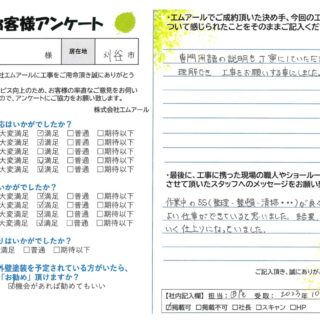 お客様アンケート
様 居在地 刈谷市
株式会社エムアールに工事をご用命頂き誠にありがとう
ビス向上のため、お客様の率直なご意見をお伺い
ので、アンケートにご協力をお願い致します。
株式会社エムアール
応はいかがでしたか?
大変満足 ☑満足 □普通 □期待以下
大変満足 ☑満足 □普通 □期待以下
大変満足 ☑満足 □普通 □期待以下
大変満足 ☑満足 □普通 □期待以下
はいかがでしたか?
大変満足 □満足 □普通 □期待以下
大変満足 □満足 □普通 □期待以下
大変満足 □満足 □普通 □期待以下
大変満足 □満足 □普通 □期待以下
りはいかがでしたか?
大変満足 ☑満足 □普通 □期待以下
外壁塗装を予定されている方がいたら、
「お勧め」頂けますか?
☑機会があれば勧めてもいい
・エムアールでご成約頂いた決め手、今回の工
ついて感じられたことをそのままご記入くだ
専門用語の説明も丁寧にしていただ
理解でき 工事をお願いする事にしました。
・最後に、工事に携った現場の職人やショールー
させて頂いたスタッフへのメッセージをお願い
作業中の5S(整理・整頓・清掃・・・)が良く
よい仕事ができていると思いました 結果
いく仕上りになっていました。
ご記入頂き、誠にあり
【社内記入欄】 担当: 受取: 2023年10
☑掲載可 □掲載不可 □社長 □スキャン □HP